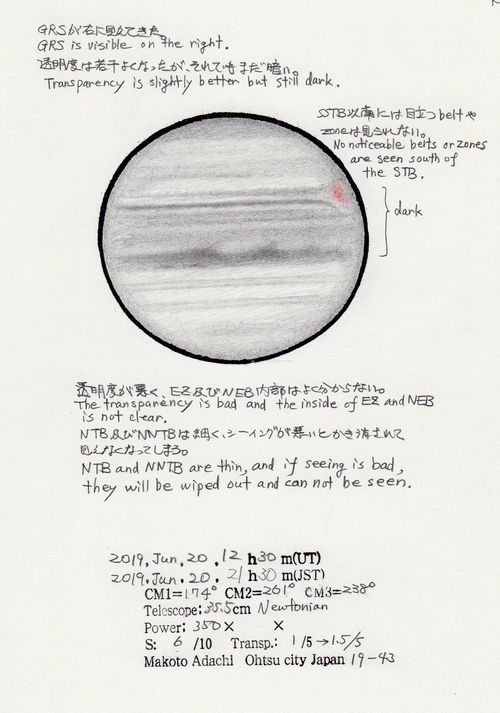 GRSが右に見えてきた。
GRS is visible on the right.
透明度は若干よくなったが、それでもまだ暗い。
Transparency is slightly better but still dark.
STB以南には目立つbeltや
zoneは見られない。
No noticeable belts or zones
are seen south of
the STB.
dark
透明度が悪く、EZ及びNEB内部はよく分からない。
The transparency is bad and the inside of EZ and NEB
is not clear.
NTB及びNNTBは細く、シーイングが悪いとかき消されて
見えなくなってしまう。
NTB and NNTB are thin, and if seeing is bad,
they will be wiped out and can not be seen.
2019, Jun, 20, 12 h30 m(UT)
2019, Jun, 20, 21 h30 m(JST)
CM1=174° CM2=261° CM3=238°
Telescope: 35.5cm Newtonian
Power: 350× ×
S: 6 /10 Transp.: 1 /5→1.5/5
Makoto Adachi Ohtsu city Japan 19-43